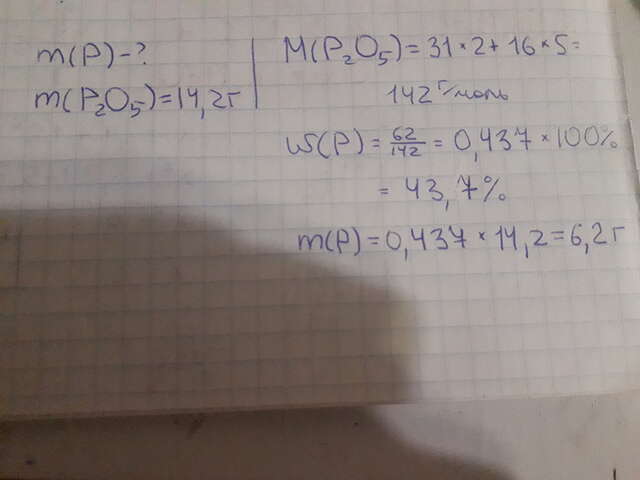 m(P)-?
m(P₂O₅)=14,2г
M(P₂O₅)=31×2+16×5=
142 г/моль
W(P)=62/142=0,437×100%
=43,7%
m(P)=0,437×14,2=6,2г